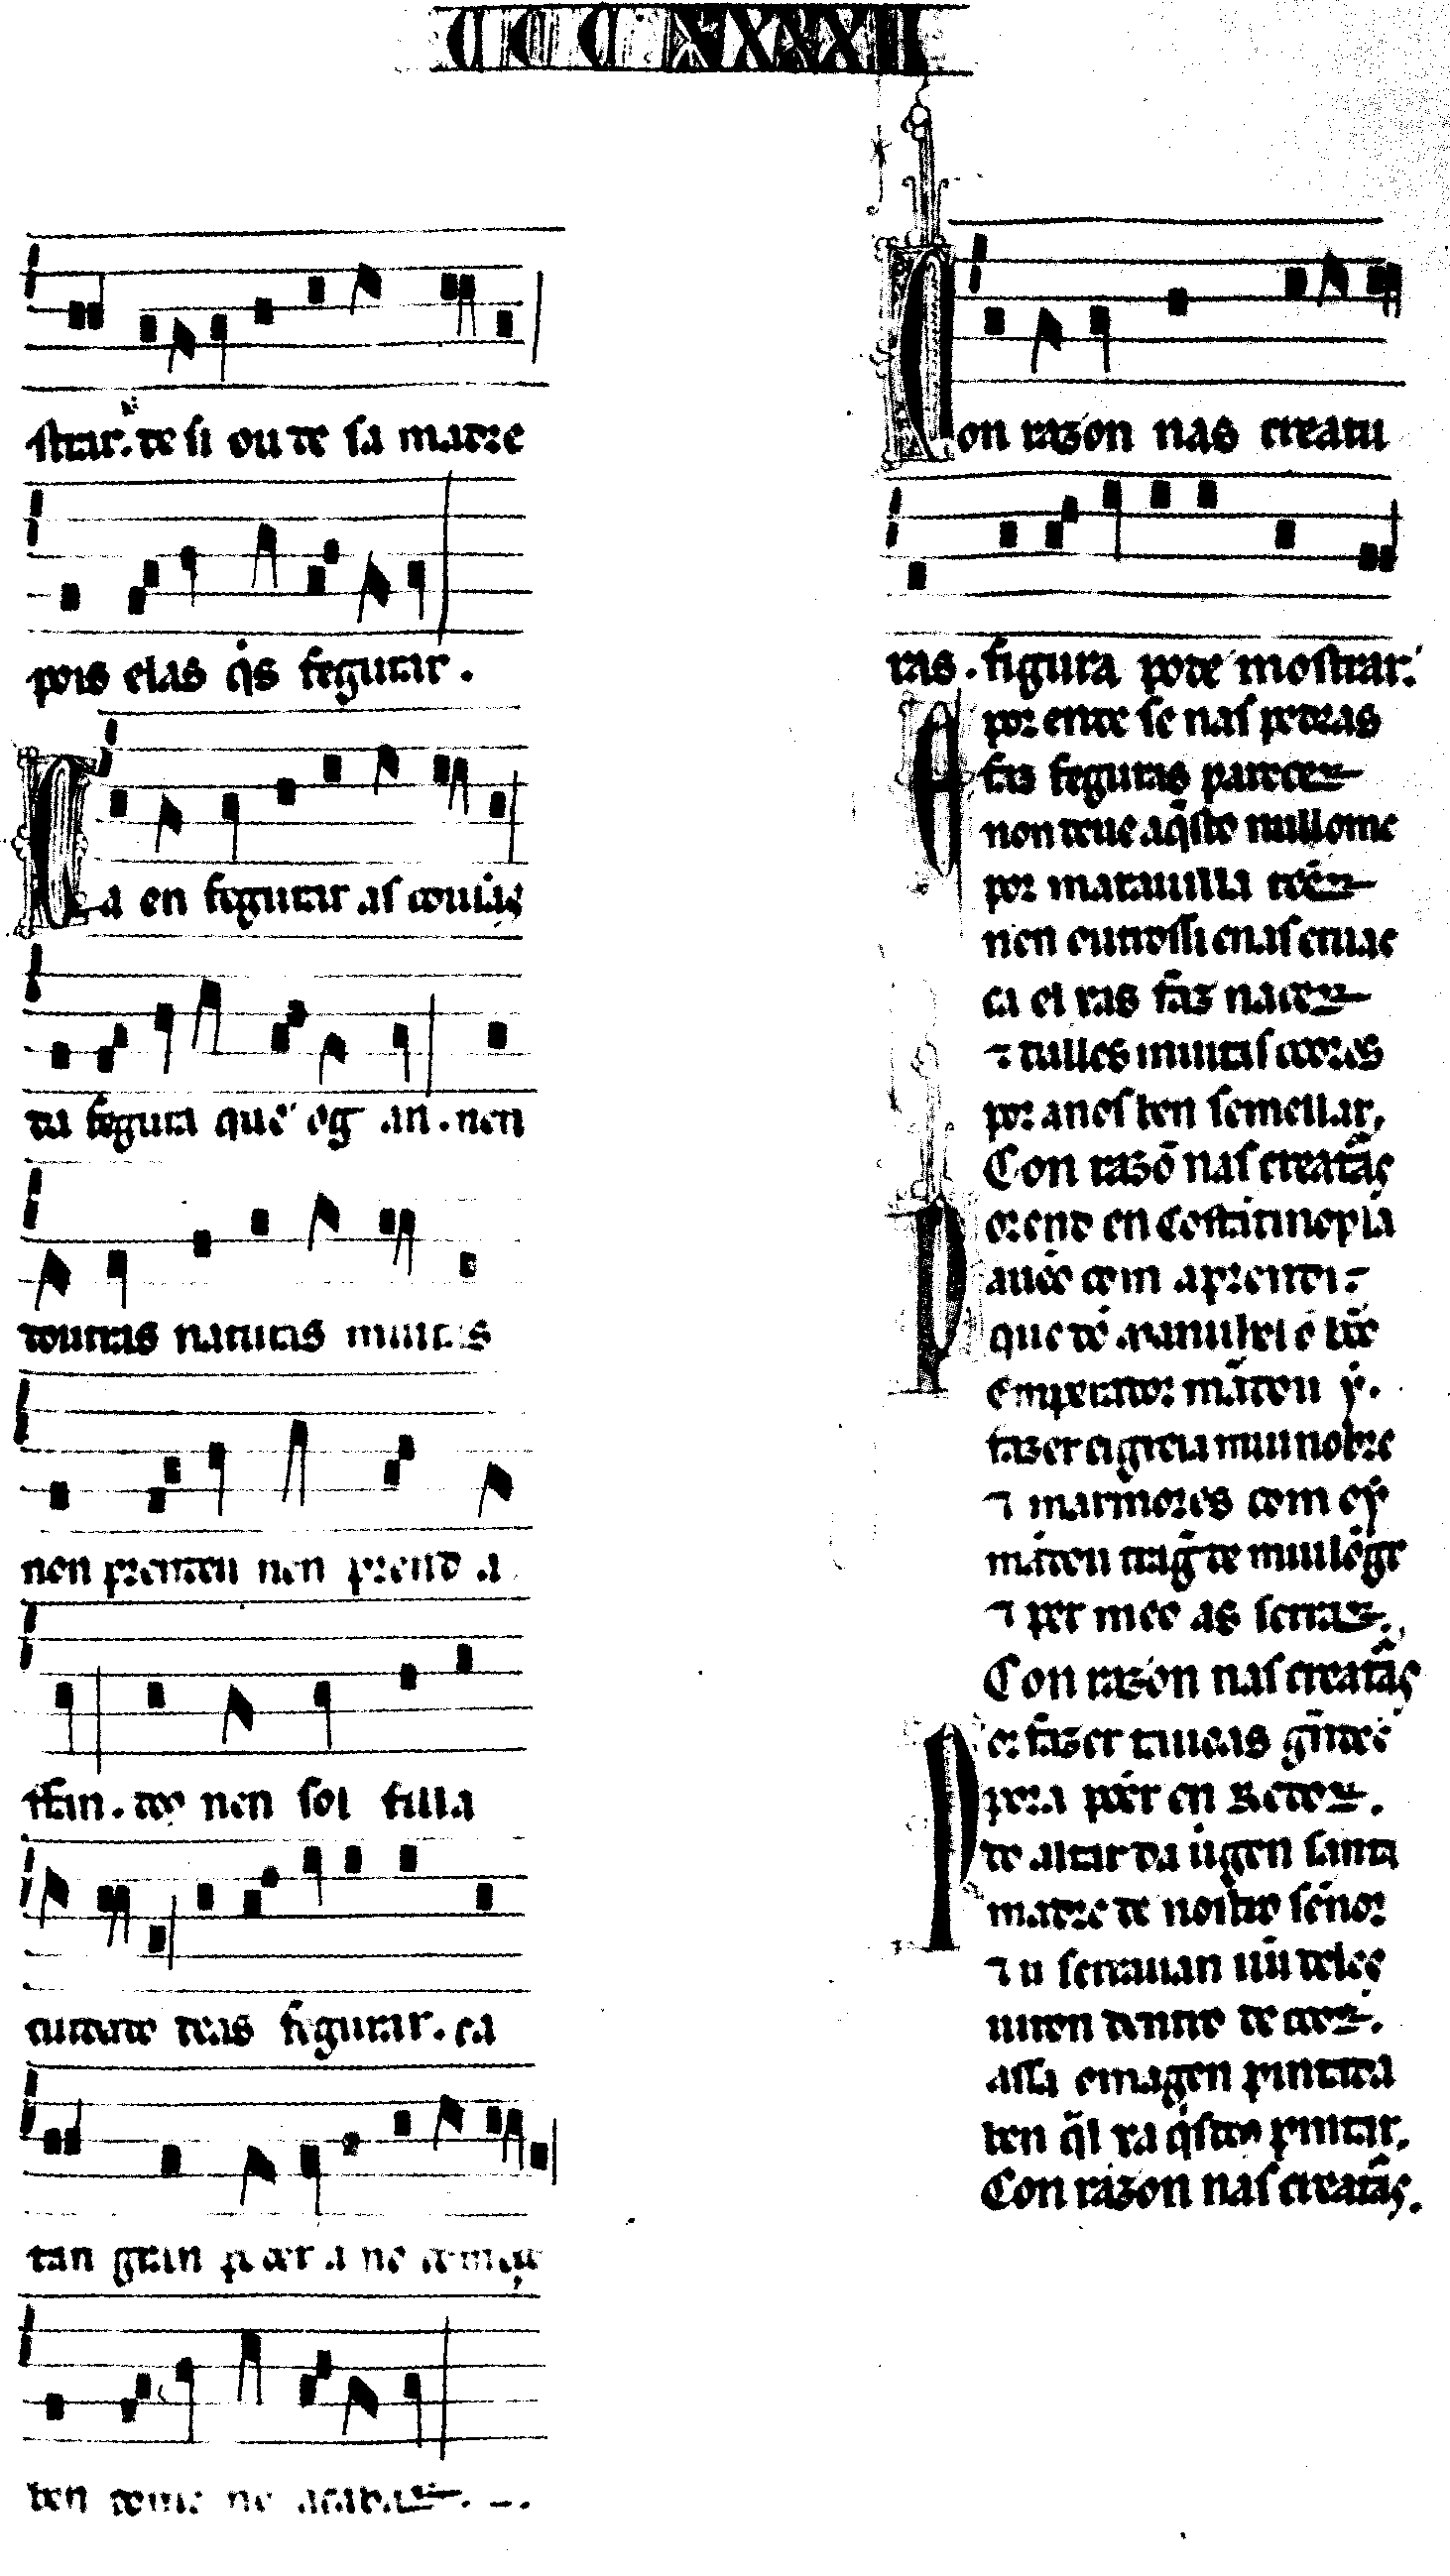 CCCXXXII
strar. de si ou de sa madre
pois elas q̇s fegurar.
Ca en fegurar as
da fegura que og an. nen
doutras naturas muitas
nen prendeu nen prend a
ffin. do nen sol filla
cuidado deas figurar. ca
tan gran poder a
ben acabar.
Con razon nas creatu
ras. figura pode mostrar.
A por ende se nas pedras
faz feguras parecer
non deue aq̄sto null ome
por marauilla tẽer
nen outrossi enas eruas
ca el ras faz nacer
⁊ dalles muitas coores
por a nos ben semellar.
Con razõ nas creatũs
Porend en Costãtinopla
aueo com aprendi.
que dõ Manuhel o bõo
emperador mãdou y.
fazer eigreia mui nobre
⁊ marmores com oy
mãdou trag̃ de mui lõge
⁊ per meo as serrar.
Con razon nas creatũs
Por fazer tauoas g̃ndes
pora põer en redor.
do altar da uigen santa
madre de nostro señor
⁊ u serrauan hũa delas
uiron dentro de coor.
assa omagen pintada
ben q̃l xa q̇sera pintar.
Con razon nas creatũs.